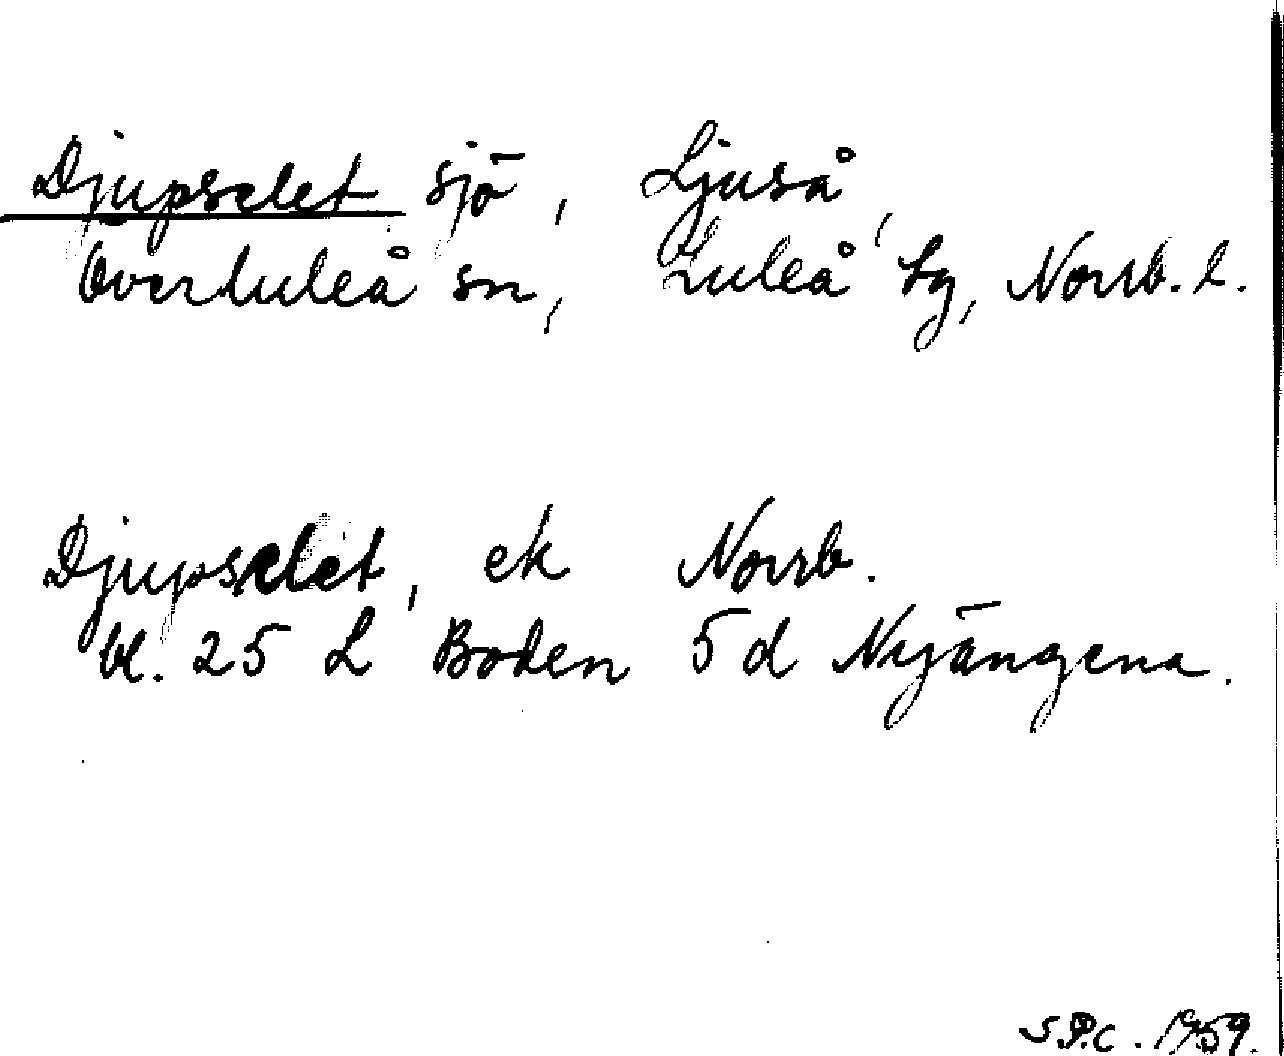 Djupselet sjö, Ljuså,
Överluleå sn, Luleå tg, Norrb. l.
Djupselet, ek Norrb.
bl. 25 L Boden 5 d Nyängena.
S.P.C. 1959.